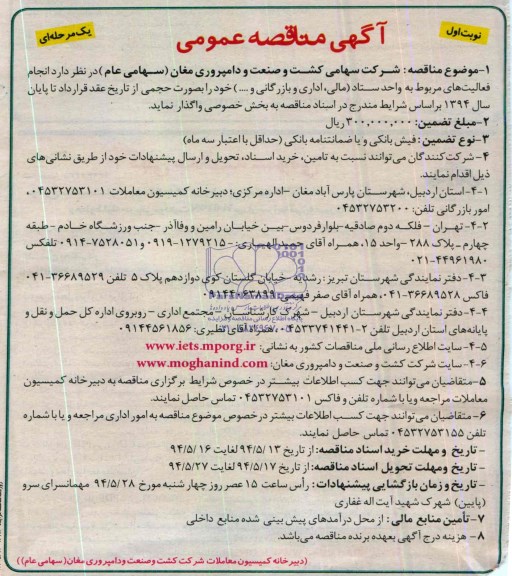 نوبت اول
یک مرحله‌ای
آگهی مناقصه عمومی
۱-موضوع مناقصه: شرکت سهامی کشت و صنعت و دامپروری مغان (سهامی عام) در نظر دارد انجام
فعالیت‌های مربوط به واحد ستاد (مالی، اداری و بازرگانی و ....) خود را بصورت حجمی از تاریخ عقد قرارداد تا پایان
سال ۱۳۹۴ براساس شرایط مندرج در اسناد مناقصه به بخش خصوصی واگذار نماید.
۲-مبلغ تضمین: ۳۰۰,۰۰۰,۰۰۰ ریال
۳-نوع تضمین: فیش بانکی و یا ضمانتنامه بانکی (حداقل با اعتبار سه ماه)
۴-شرکت کنندگان می‌توانند نسبت به تامین، خرید اسناد، تحویل و ارسال پیشنهادات خود از طریق نشانی‌های
ذیل اقدام نمایند.
۴-۱-استان اردبیل، شهرستان پارس آباد مغان -اداره مرکزی؛ دبیرخانه کمیسیون معاملات ۰۴۵۳۲۷۵۳۱۰۱،
امور بازرگانی تلفن: ۰۴۵۳۲۷۵۳۲۰۰
۴-۲- تهران - فلکه دوم صادقیه-بلوار فردوس-بین خیابان رامین و وفاآذر -جنب ورزشگاه خادم - طبقه
چهارم -پلاک ۲۸۸ -واحد ۱۵، همراه آقای حمید الهیاری: ۱۲۷۹۲۱۵-۰۹۱۹ و ۷۵۲۸۰۵۱-۰۹۱۴ تلفکس
۰۲۱-۴۴۹۶۱۹۸۰
۴-۳-دفتر نمایندگی شهرستان تبریز: رشدیه -خیابان گلستان کوی دوازدهم پلاک ۵ تلفن ۳۶۶۸۹۵۲۹-۰۴۱
فاکس ۳۶۶۸۹۵۲۸-۰۴۱، همراه آقای صفر فهیمی:
۴-۴-دفتر نمایندگی شهرستان اردبیل - شهرک کارشناسان - مجتمع اداری - روبروی اداره کل حمل و نقل و
پایانه‌های استان اردبیل تلفن ۲-۰۴۵۳۳۷۴۱۴۴۱، همراه آقای نظیری: ۰۹۱۴۴۵۶۱۸۵۶
۴-۵- سایت اطلاع رسانی ملی مناقصات کشور به نشانی: www.iets.mporg.ir
۴-۶- سایت شرکت کشت و صنعت و دامپروری مغان: www.moghanind.com
۵-متقاضیان می‌توانند جهت کسب اطلاعات بیشتر در خصوص شرایط برگزاری مناقصه به دبیرخانه کمیسیون
معاملات مراجعه و یا با شماره تلفن و فاکس ۰۴۵۳۲۷۵۳۱۰۱ تماس حاصل نمایند.
۶-متقاضیان می‌توانند جهت کسب اطلاعات بیشتر در خصوص موضوع مناقصه به امور اداری مراجعه و یا با شماره
تلفن ۰۴۵۳۲۷۵۳۱۵۵ تماس حاصل نمایند.
- تاریخ و مهلت خرید اسناد مناقصه: از تاریخ ۹۴/۵/۱۳ لغایت ۹۴/۵/۱۶
- تاریخ ومهلت تحویل اسناد مناقصه: از تاریخ ۹۴/۵/۱۷ لغایت ۹۴/۵/۲۷
- تاریخ و زمان بازگشایی پیشنهادات: رأس ساعت ۱۵ عصر روز چهار شنبه مورخ ۹۴/۵/۲۸ مهمانسرای سرو
(پایین) شهرک شهید آیت اله غفاری
۷-تأمین منابع مالی: از محل درآمدهای پیش بینی شده منابع داخلی
۸- هزینه درج آگهی بعهده برنده مناقصه می‌باشد.
(دبیرخانه کمیسیون معاملات شرکت کشت وصنعت ودامپروری مغان (سهامی عام))